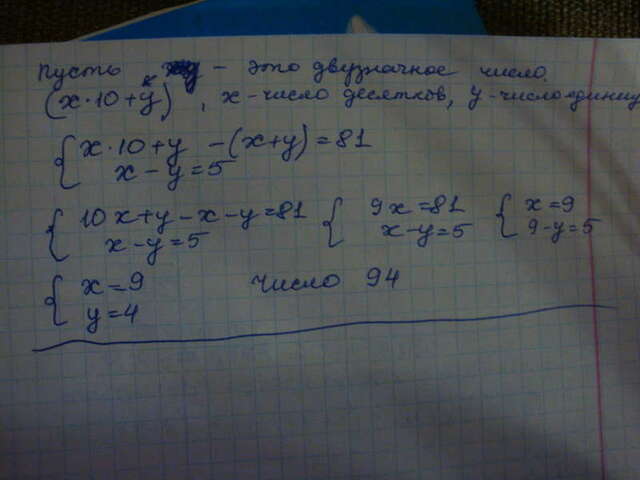 Пусть - это двузначное число.
(x·10+y), x - число десятков, y - число единиц
{ x·10+y -(x+y)=81
x-y=5
{ 10x+y-x-y=81 { 9x=81 { x=9
x-y=5 x-y=5 9-y=5
{ x=9 число 94
y=4